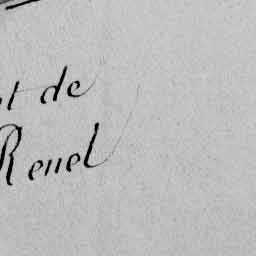 nt de
Renel